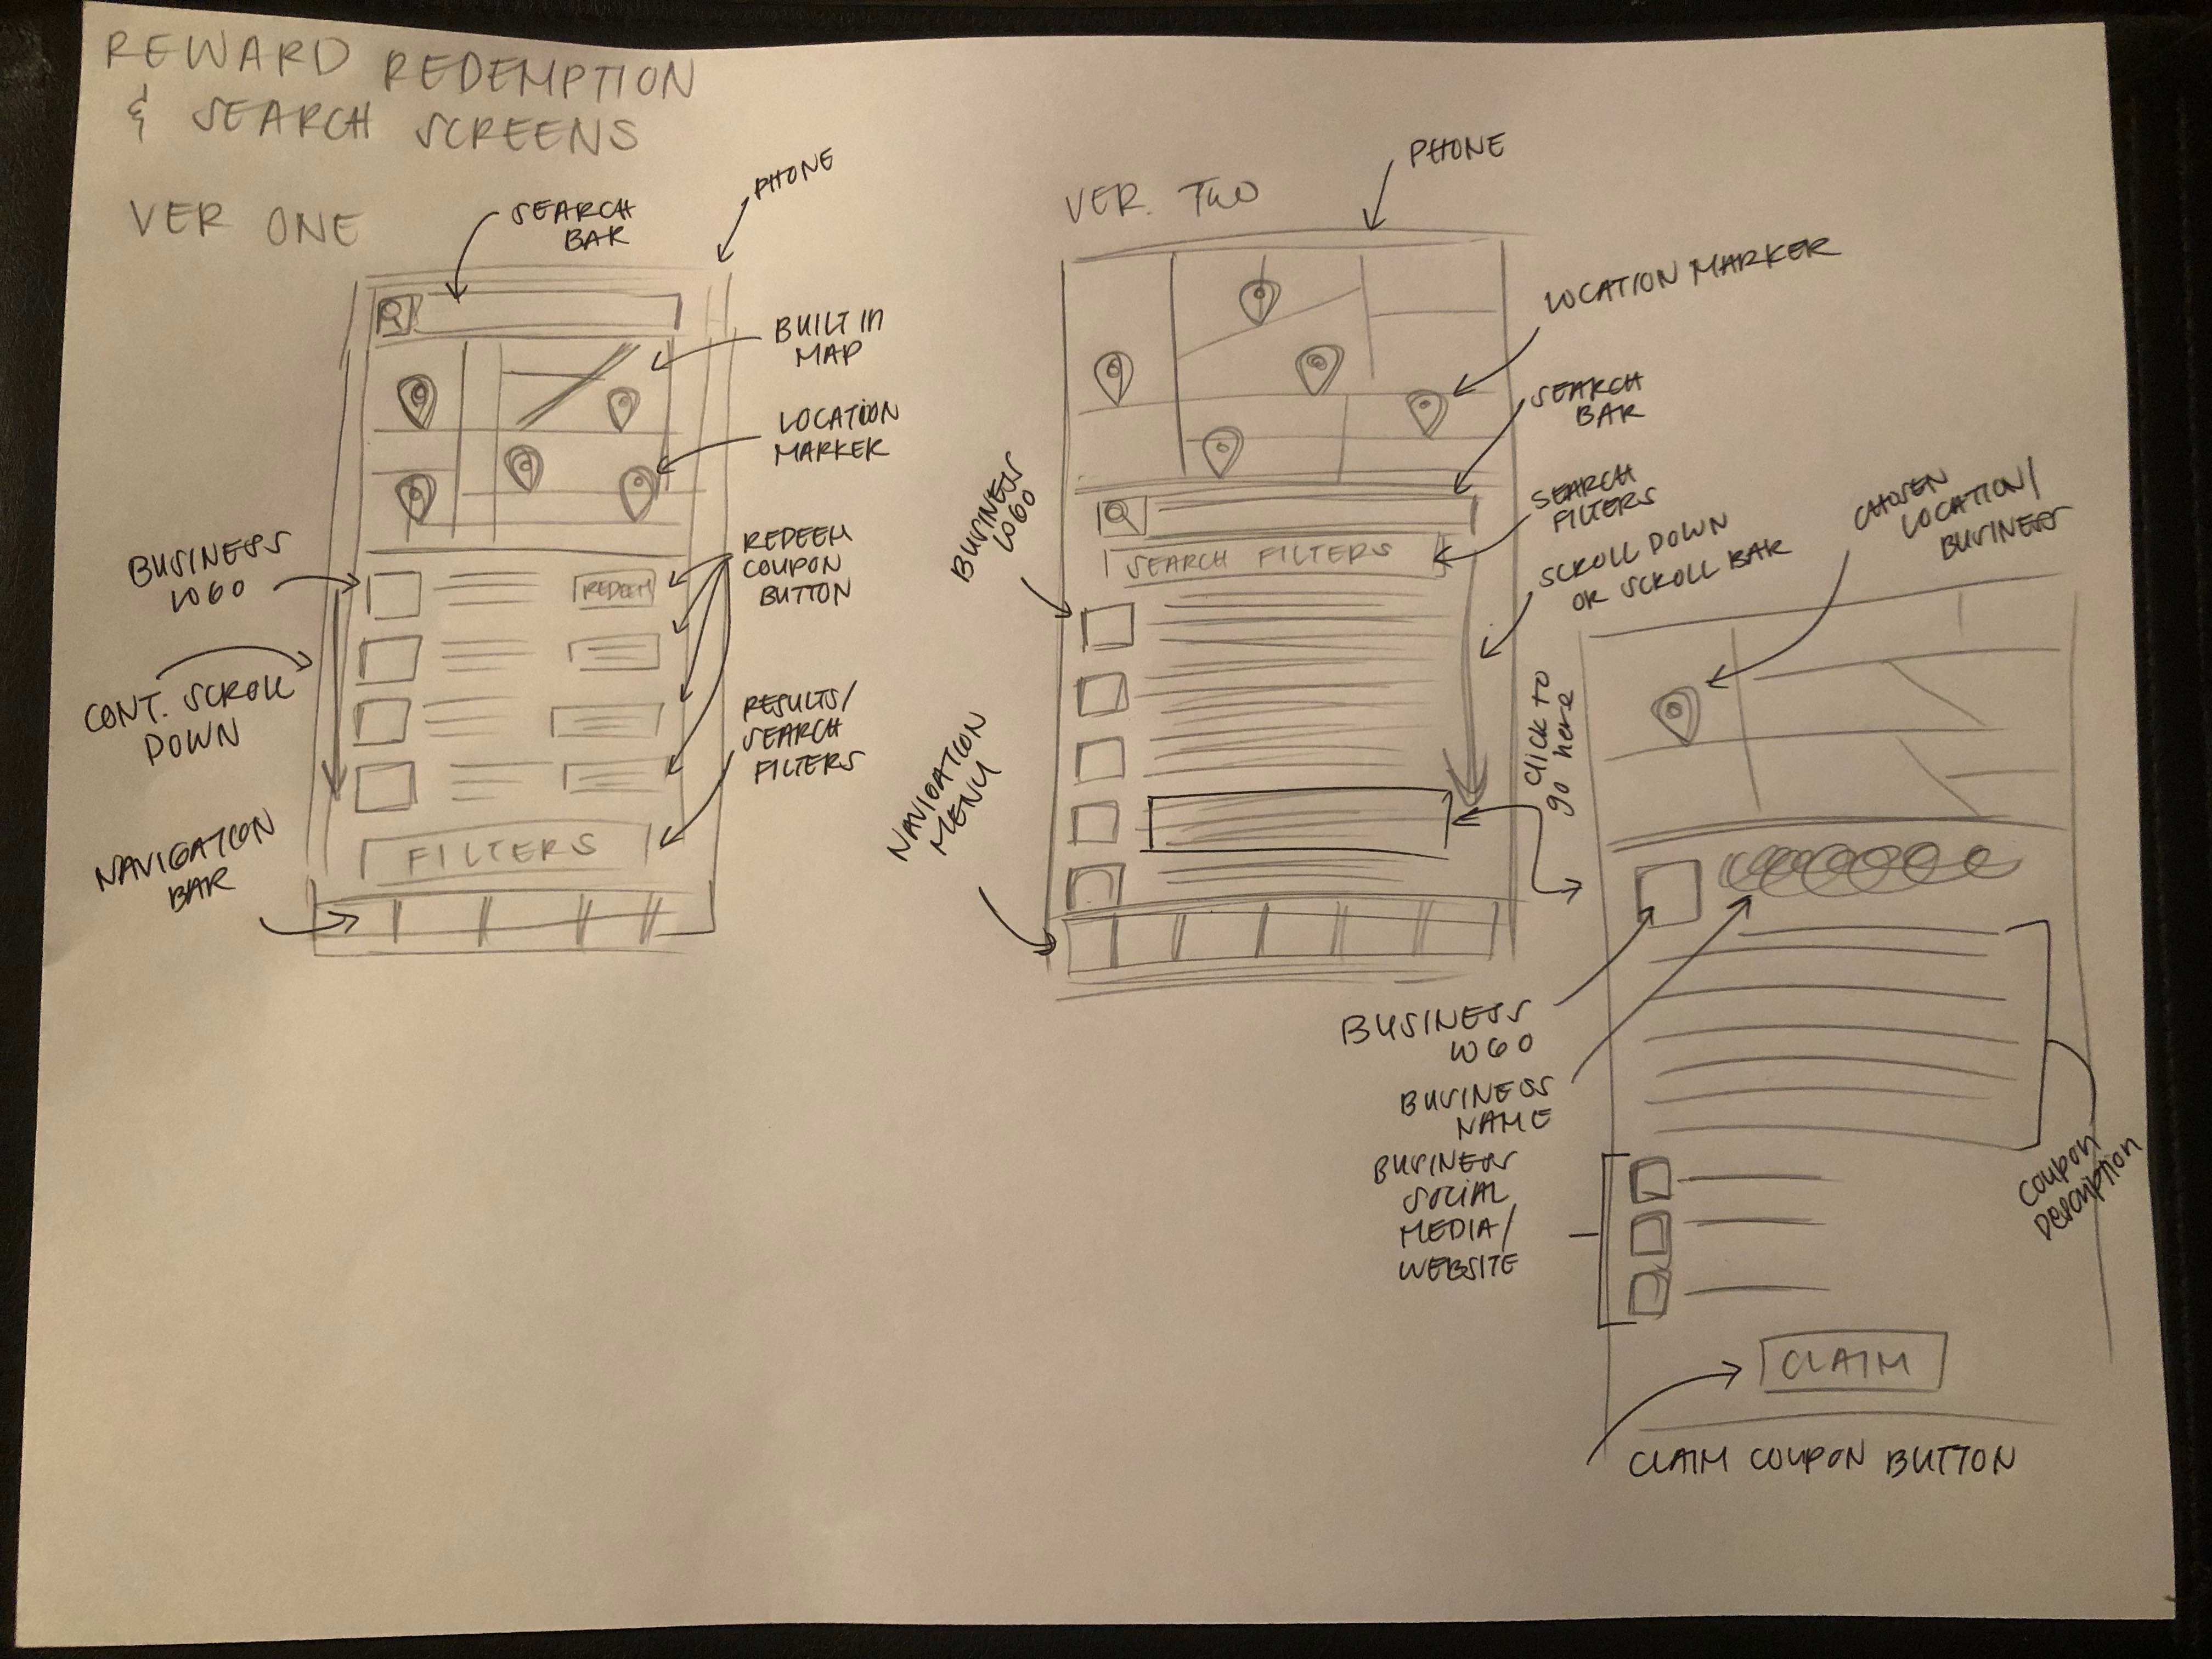 REWARD REDEMPTION
& SEARCH SCREENS
VER ONE
SEARCH
BAR
PHONE
BUILT IN
MAP
LOCATION
MARKER
BUSINESS
LOGO
REDEEM
COUPON
BUTTON
REDEEM
CONT. SCROLL
DOWN
RESULTS/
SEARCH
FILTERS
NAVIGATION
BAR
FILTERS
VER. TWO
PHONE
LOCATION MARKER
SEARCH
BAR
SEARCH
FILTERS
SEARCH FILTERS
BUSINESS
LOGO
SCROLL DOWN
OR SCROLL BAR
NAVIGATION
MENU
Click to
go here
CHOSEN
LOCATION/
BUSINESS
BUSINESS
LOGO
BUSINESS
NAME
BUSINESS
SOCIAL
MEDIA/
WEBSITE
Coupon
Description
CLAIM
CLAIM COUPON BUTTON